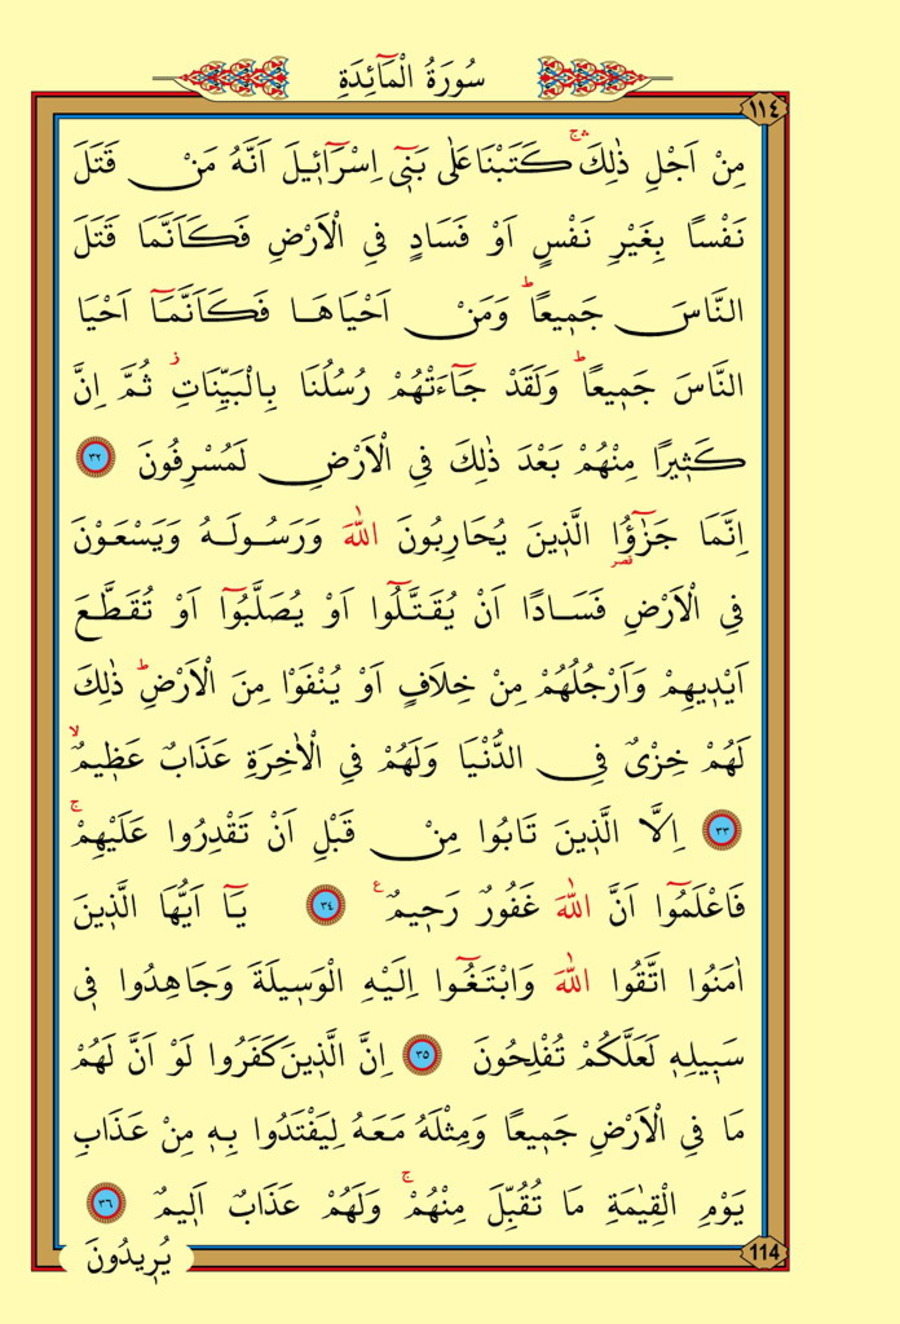 سُورَةُ الْمَٓائِدَةِ
١١٤
مِنْ اَجْلِ ذٰلِكَۚۛ كَتَبْنَا عَلٰى بَن۪ٓي اِسْرَٓاء۪يلَ اَنَّهُ مَنْ قَتَلَ
نَفْسًا بِغَيْرِ نَفْسٍ اَوْ فَسَادٍ فِي الْاَرْضِ فَكَاَنَّمَا قَتَلَ
النَّاسَ جَم۪يعًاۜ وَمَنْ اَحْيَاهَا فَكَاَنَّمَٓا اَحْيَا
النَّاسَ جَم۪يعًاۜ وَلَقَدْ جَٓاءَتْهُمْ رُسُلُنَا بِالْبَيِّنَاتِۘ ثُمَّ اِنَّ
كَث۪يرًا مِنْهُمْ بَعْدَ ذٰلِكَ فِي الْاَرْضِ لَمُسْرِفُونَ ﴿٣٢﴾
اِنَّمَا جَزٰٓؤُا الَّذ۪ينَ يُحَارِبُونَ اللّٰهَ وَرَسُولَهُ وَيَسْعَوْنَ
فِي الْاَرْضِ فَسَادًا اَنْ يُقَتَّلُٓوا اَوْ يُصَلَّبُٓوا اَوْ تُقَطَّعَ
اَيْد۪يهِمْ وَاَرْجُلُهُمْ مِنْ خِلَافٍ اَوْ يُنْفَوْا مِنَ الْاَرْضِۜ ذٰلِكَ
لَهُمْ خِزْيٌ فِي الدُّنْيَا وَلَهُمْ فِي الْاٰخِرَةِ عَذَابٌ عَظ۪يمٌۙ
﴿٣٣﴾ اِلَّا الَّذ۪ينَ تَابُوا مِنْ قَبْلِ اَنْ تَقْدِرُوا عَلَيْهِمْۚ
فَاعْلَمُٓوا اَنَّ اللّٰهَ غَفُورٌ رَح۪يمٌ۟ ﴿٣٤﴾ يَٓا اَيُّهَا الَّذ۪ينَ
اٰمَنُوا اتَّقُوا اللّٰهَ وَابْتَغُٓوا اِلَيْهِ الْوَس۪يلَةَ وَجَاهِدُوا ف۪ي
سَب۪يلِه۪ لَعَلَّكُمْ تُفْلِحُونَ ﴿٣٥﴾ اِنَّ الَّذ۪ينَ كَفَرُوا لَوْ اَنَّ لَهُمْ
مَا فِي الْاَرْضِ جَم۪يعًا وَمِثْلَهُ مَعَهُ لِيَفْتَدُوا بِه۪ مِنْ عَذَابِ
يَوْمِ الْقِيٰمَةِ مَا تُقُبِّلَ مِنْهُمْۚ وَلَهُمْ عَذَابٌ اَل۪يمٌ ﴿٣٦﴾
114
يُر۪يدُونَ